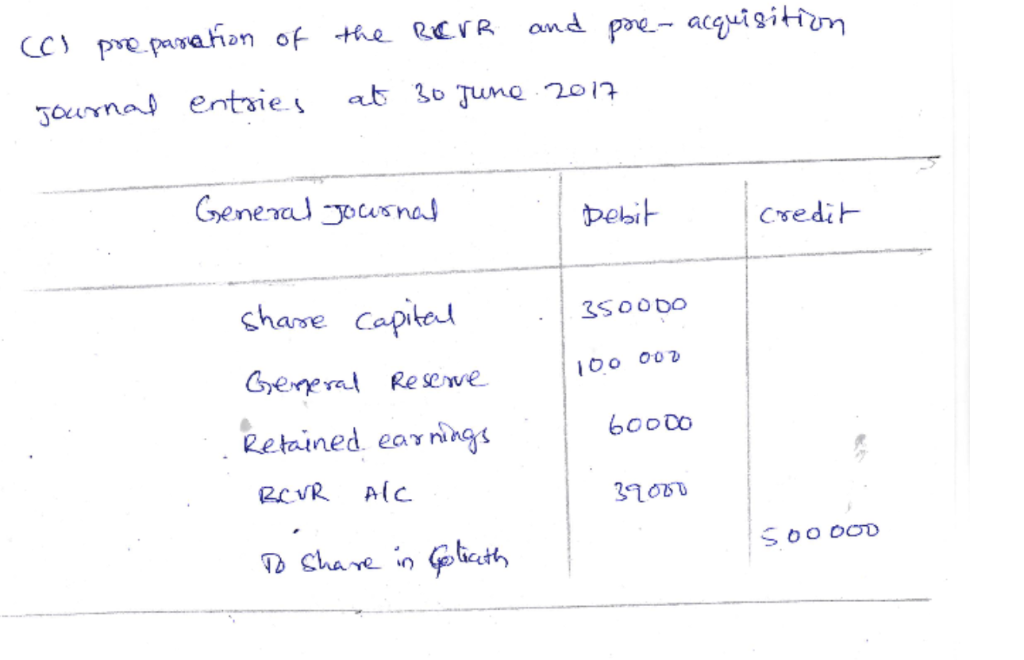 (C) preparation of the BCVR and pre-acquisition
Journal entries at 30 June 2017
General Journal Debit Credit
Share Capital 350000
General Reserve 100 000
Retained earnings 60000
BCVR A/C 39000
To Share in Goliath 500000